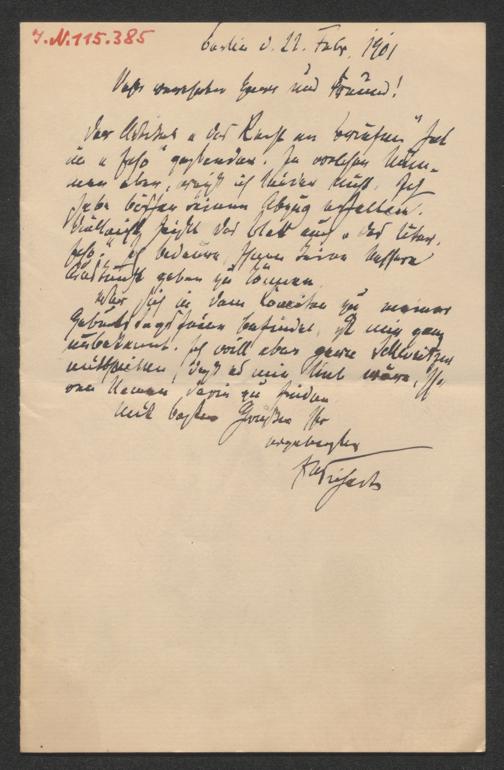 I.N. 115.385
Berlin d. 22. Febr. 1901
Sehr verehrter Herr und Freund!
Der Artikel „Das Recht an Briefen" hat
im „Echo" gestanden. In welcher Num-
mer aber, weiß ich leider nicht. Ich
habe bisher keinen Abzug erhalten.
Vielleicht heißt das Blatt auch „Das litter.
Echo". Ich bedaure, Ihnen keine bessere
Auskunft geben zu können.
Wer sich in dem Comitee zu meiner
Geburtstagsfeier befindet, ist mir ganz
unbekannt. Ich will aber gerne Schweitzer
mittheilen, daß es mir lieb wäre, Ih-
ren Namen darin zu finden
Mit besten Grüßen Ihr
ergebenster